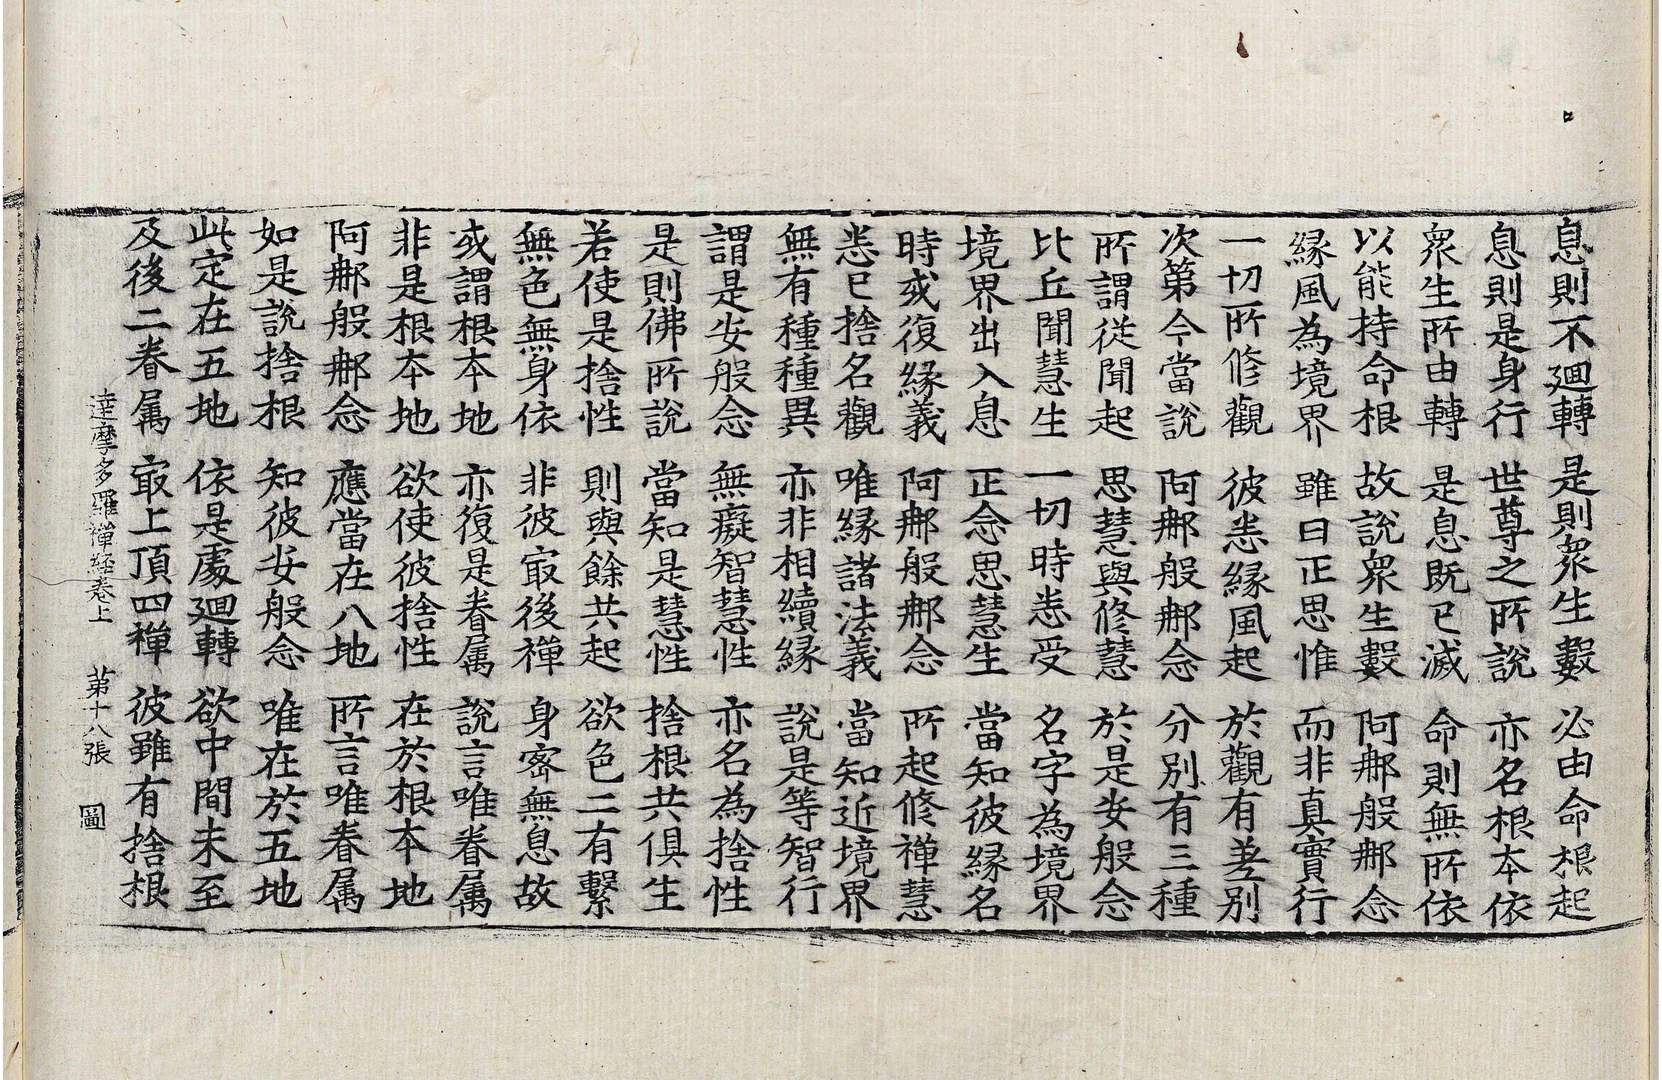 息則不迴轉　是則衆生數　必由命根起
息則是身行　世尊之所說　亦名根本依
衆生所由轉　是息既已滅　命則無所依
以能持命根　故說衆生數　阿𨚗般𨚗念
緣風為境界　雖曰正思惟　而非真實行
一切所修觀　彼悉緣風起　於觀有差別
次第今當說　阿𨚗般𨚗念　分別有三種
所謂從聞起　思慧與修慧　於是安般念
比丘聞慧生　一切時悉受　名字為境界
境界出入息　正念思慧生　當知彼緣名
時或復緣義　阿𨚗般𨚗念　所起修禪慧
悉已捨名觀　唯緣諸法義　當知近境界
無有種種異　亦非相續緣　說是等智行
謂是安般念　無癡智慧性　亦名為捨性
是則佛所說　當知是慧性　捨根共俱生
若使是捨性　則與餘共起　欲色二有繫
無色無身依　非彼㝡後禪　身密無息故
或謂根本地　亦復是眷属　說言唯眷属
非是根本地　欲使彼捨性　在於根本地
阿𨚗般𨚗念　應當在八地　所言唯眷属
如是說捨根　知彼安般念　唯在於五地
此定在五地　依是處迴轉　欲中間未至
及後二眷属　㝡上頂四禪　彼雖有捨根
達摩多羅禪經卷上　第十八張　圖